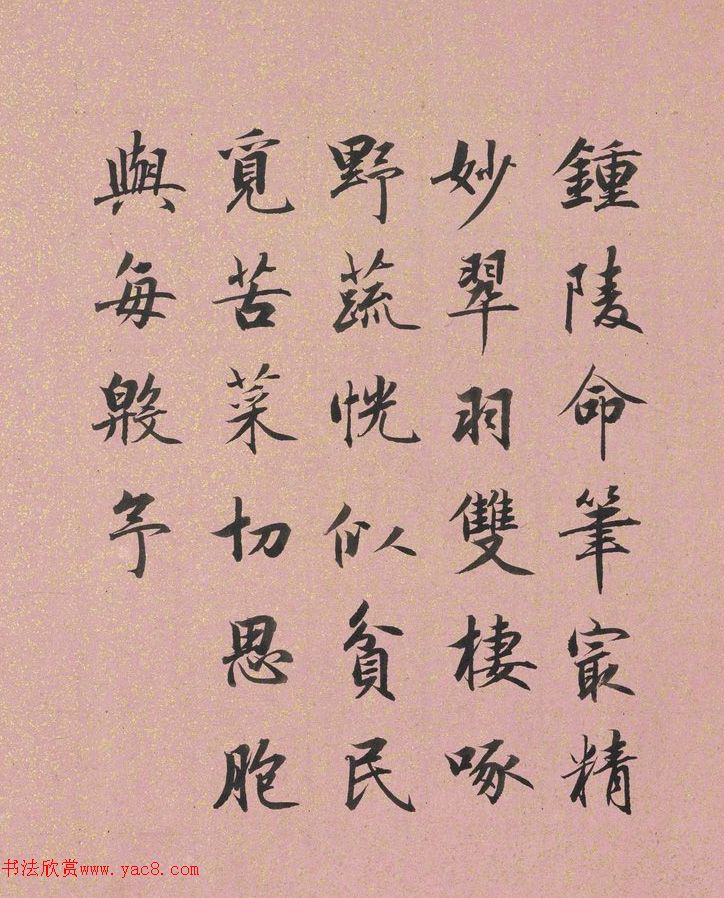 鍾陵命筆㝡精
妙翠羽雙棲啄
野蔬恍似貧民
覓苦菜切思胞
與每殷予
书法欣赏www.yac8.com